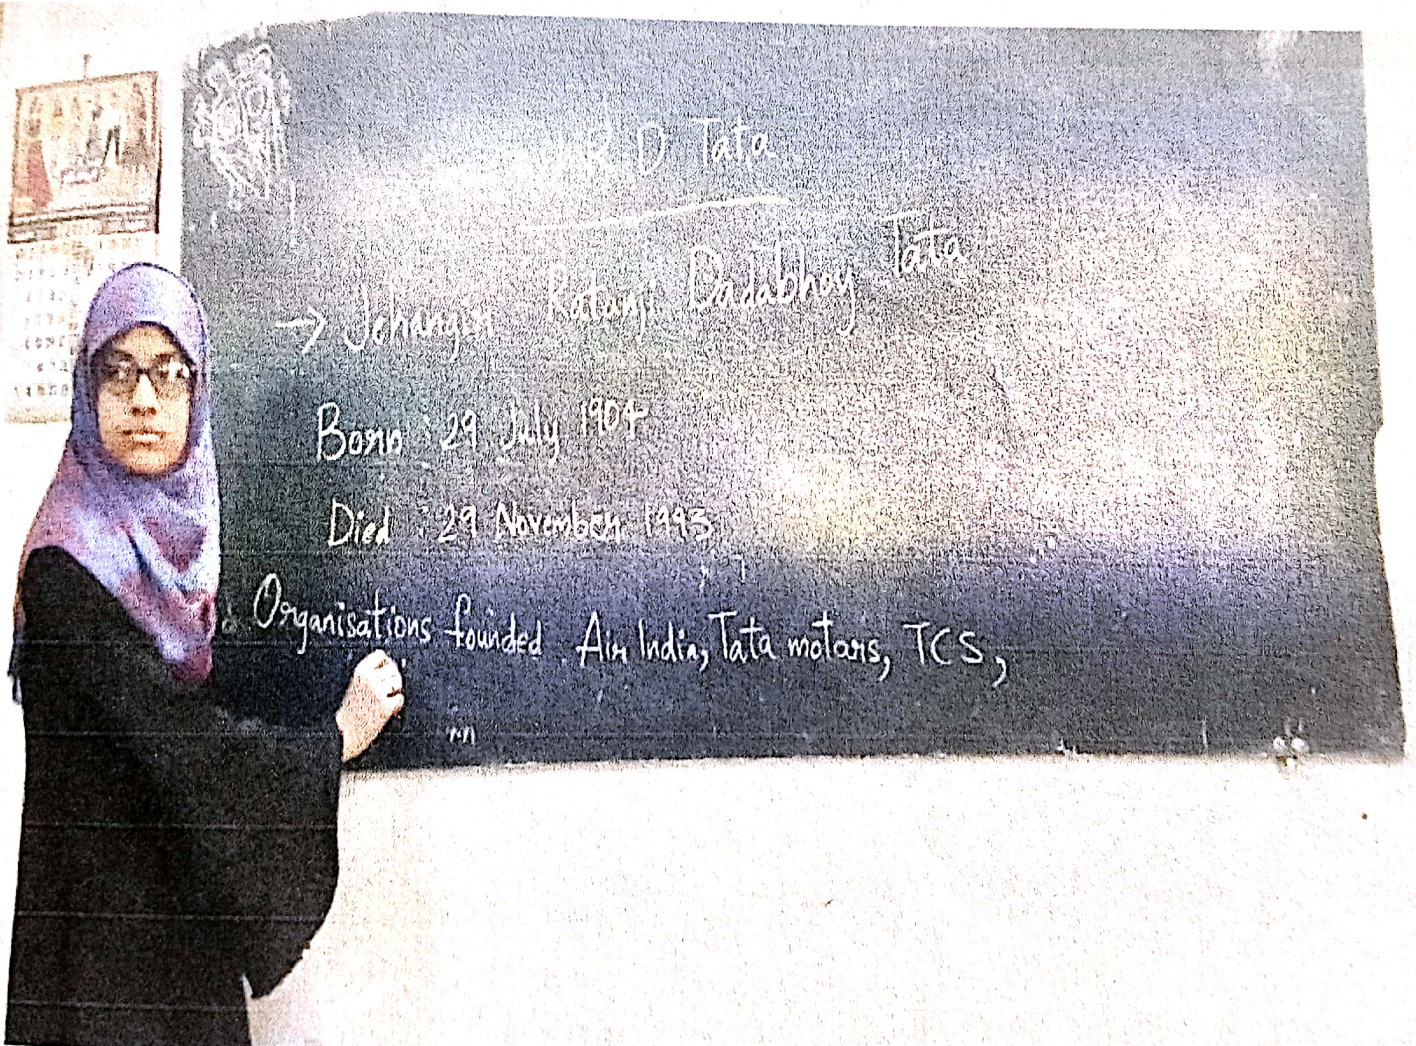 J R D Tata
→ Jehangir Ratanji Dadabhoy Tata
Born : 29 July 1904
Died : 29 November 1993
Organisations founded : Air India, Tata motors, TCS,